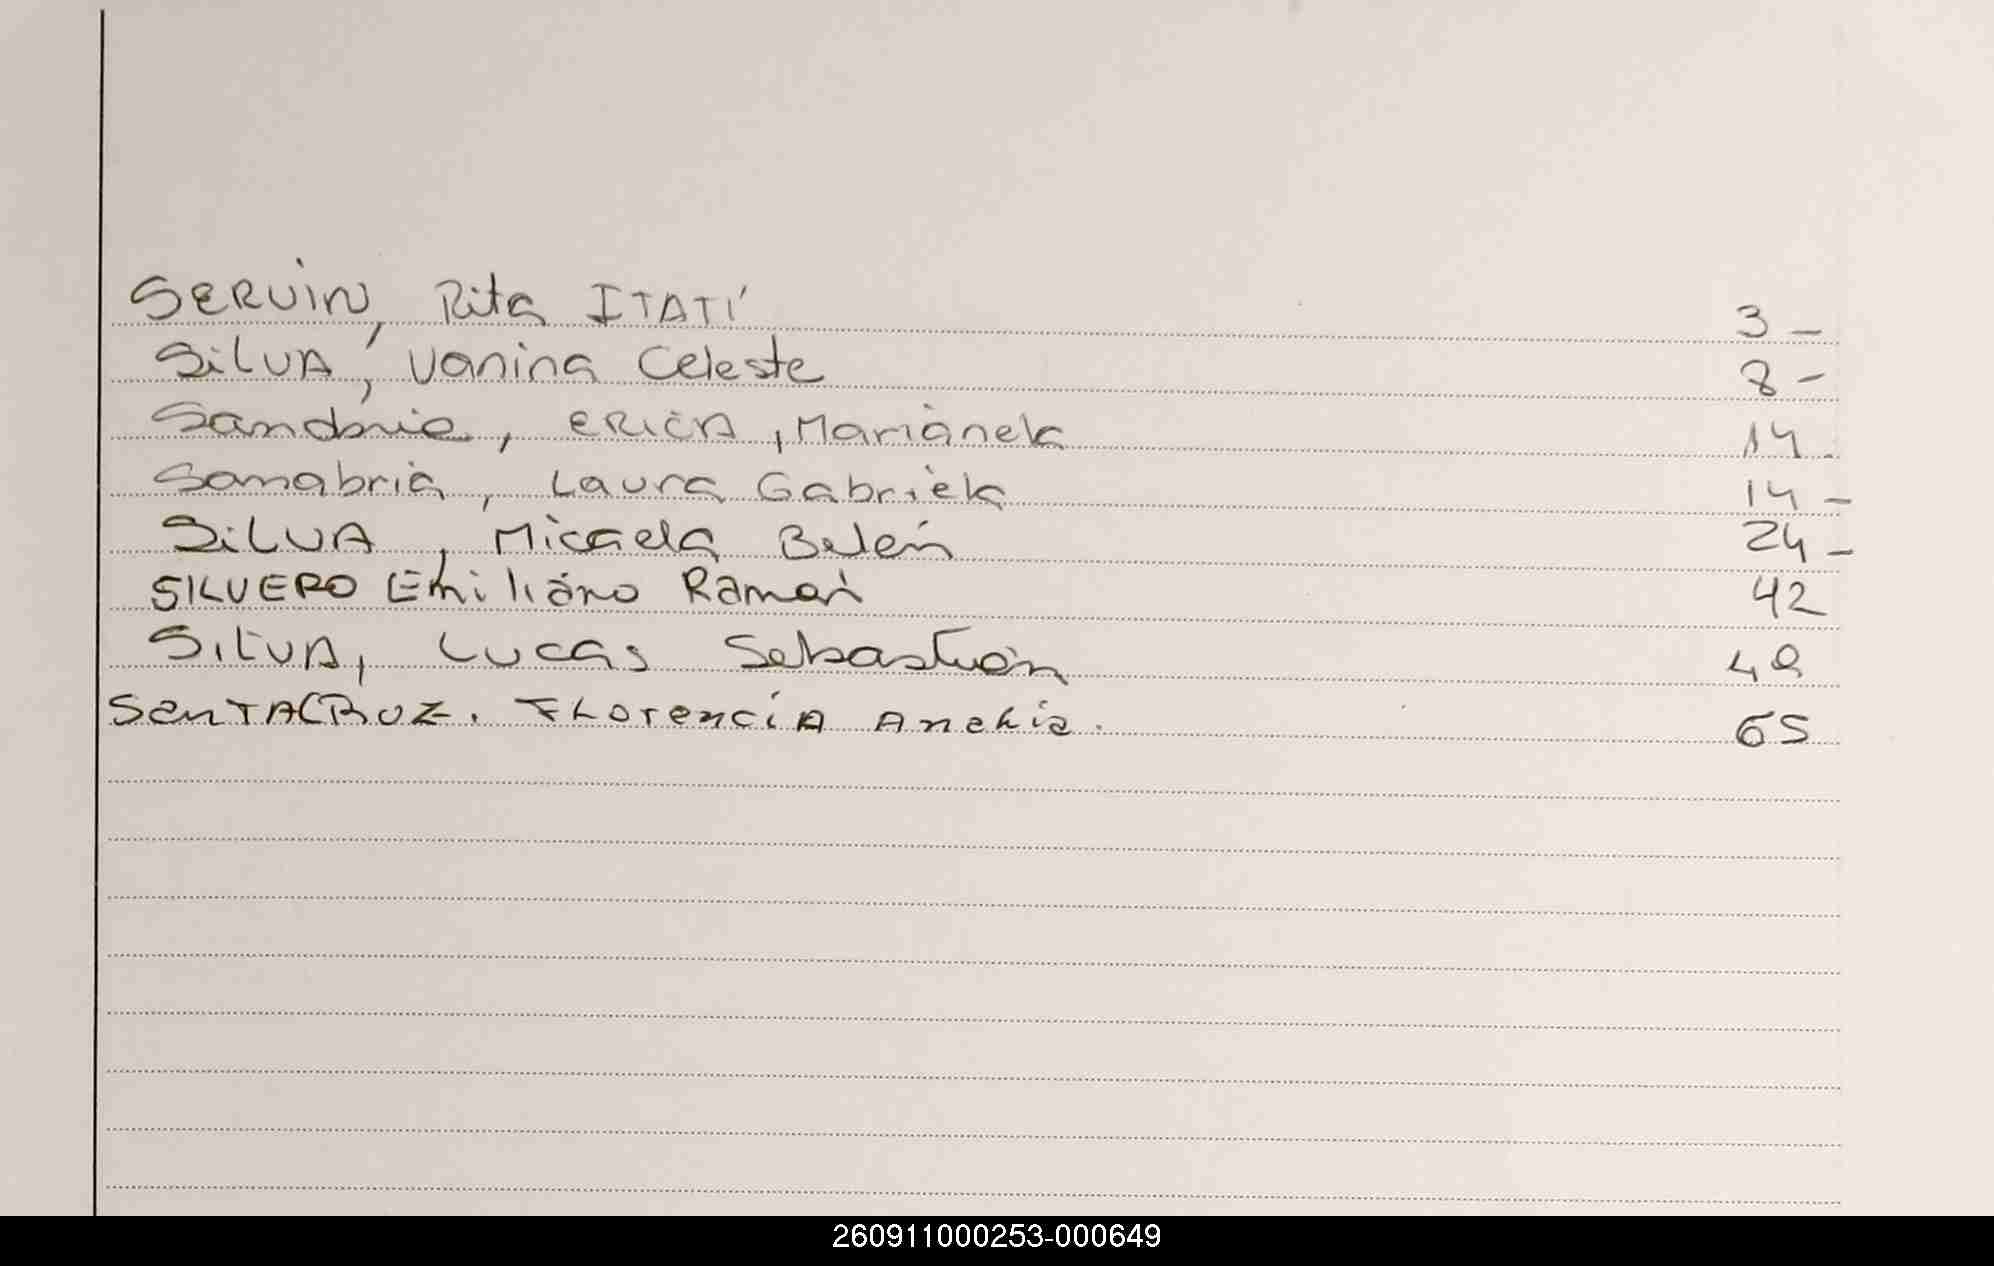 SERVIN, Rita ITATÍ 3 -
SilVA, Vanina Celeste 8 -
ERICA, Marianela 14.
Sanabria, Laura Gabriela 14 -
SilVA, Micaela Belén 24 -
SILVERO Emiliano Ramón 42
SilVA, Lucas Sebastián 49
SANTACRUZ. Florencia Analia. 65
260911000253-000649